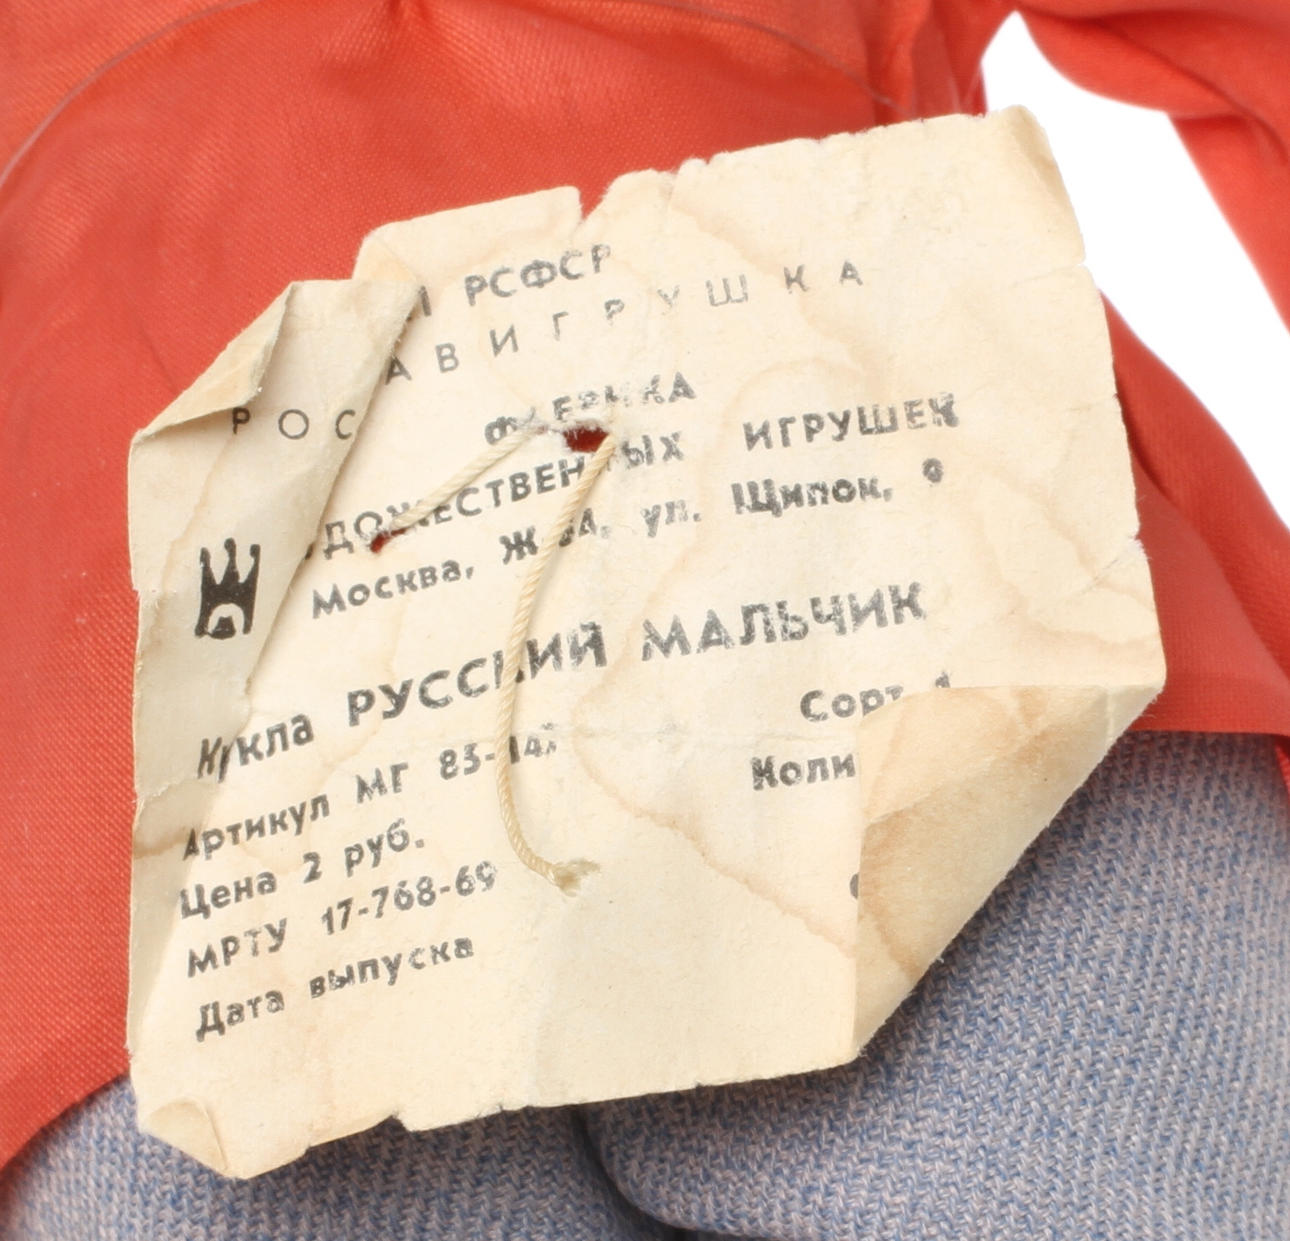 РСФСР
РОС АВИГРУШКА
ФАБРИКА
ХУДОЖЕСТВЕННЫХ ИГРУШЕК
Москва, Ж ул. Щипок,
Кукла РУССКИЙ МАЛЬЧИК
Сорт 1
Артикул МГ 83-
Коли
Цена 2 руб.
МРТУ 17-768-69
Дата выпуска